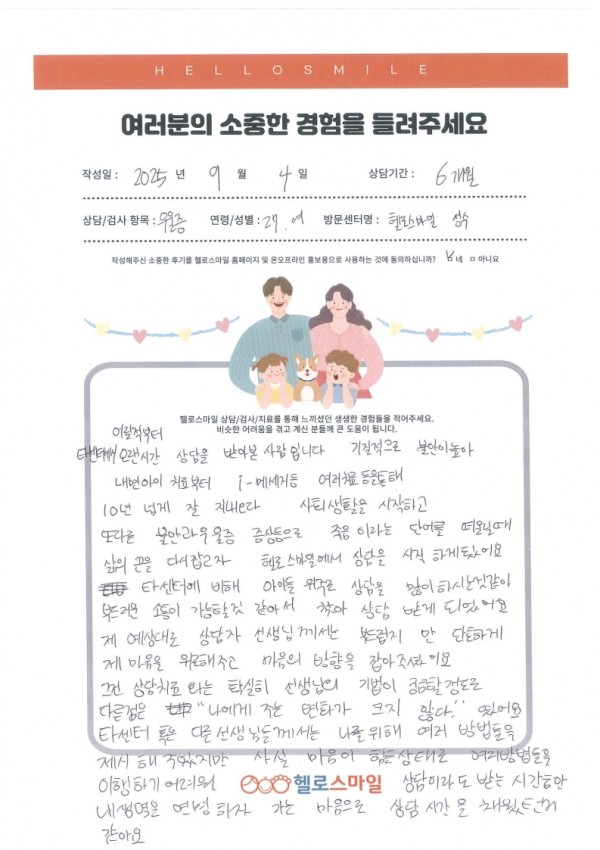 HELLOSMILE
여러분의 소중한 경험을 들려주세요
작성일 : 2025 년 9 월 4 일 상담기간 : 6개월
상담/검사 항목 : 우울증 연령/성별 : 27. 여 방문센터명 : 헬로스마일 성수
작성해주신 소중한 후기를 헬로스마일 홈페이지 및 온오프라인 홍보용으로 사용하는 것에 동의하십니까? 네 ㅁ 아니요
헬로스마일 상담/검사/치료를 통해 느끼셨던 생생한 경험들을 적어주세요.
비슷한 어려움을 겪고 계신 분들께 큰 도움이 됩니다.
어릴적부터
타센터에서 오랜시간 상담을 받아본 사람입니다 기질적으로 불안이 높아
내면아이 치료부터 i-메세지등 여러치료 등을 통해
10년 넘게 잘 지내다 사회생활을 시작하고
또다른 불안과 우울증 증상등으로 죽음 이라는 단어를 떠올릴때
삶의 끈을 다시 잡고자 헬로스마일에서 상담을 시작 하게됬어요
타센터에 비해 아이들 위주로 상담을 많이 하시는것같아
부드러운 소통이 가능할것 같아서 찾아 상담 받게 되었어요
제 예상대로 상담자 선생님께서는 부드럽지 만 단호하게
제 마음을 위로해주고 마음의 방향을 잡아주셨어요
그전 상담치료 와는 확실히 선생님의 기법이 궁금할정도로
다른점은 "나에게 주는 변화가 크지 않다." 였어요
타센터 혹은 다른 선생님들께서는 나를위해 여러 방법들을
제시 해 주었지만 사실 마음이 힘든상태로 여러방법들을
이행하기 어려워 상담이라도 받는 시간동안
헬로스마일
내 생명을 연명 하자 라는 마음으로 상담 시간 을 채웠던거
같아요